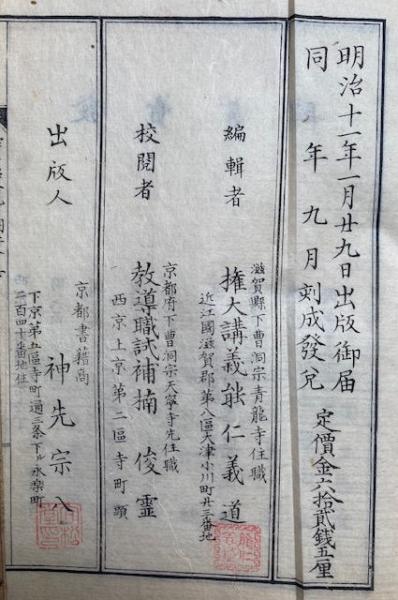 明治十一年一月廿九日出版御届
同年九月刻成發兌
定價金六拾貳錢五厘
編輯者
滋賀縣下曹洞宗青龍寺住職
權大講義能仁義道
近江國滋賀郡第八區大津小川町廿三番地
校閲者
京都府下曹洞宗天寧寺先住職
教導職試補揇俊靈
西京上京第二區寺町頭
出版人
京都書籍商
神先宗八
下京第五區寺町通三条下ル永楽町
二百四十番地住